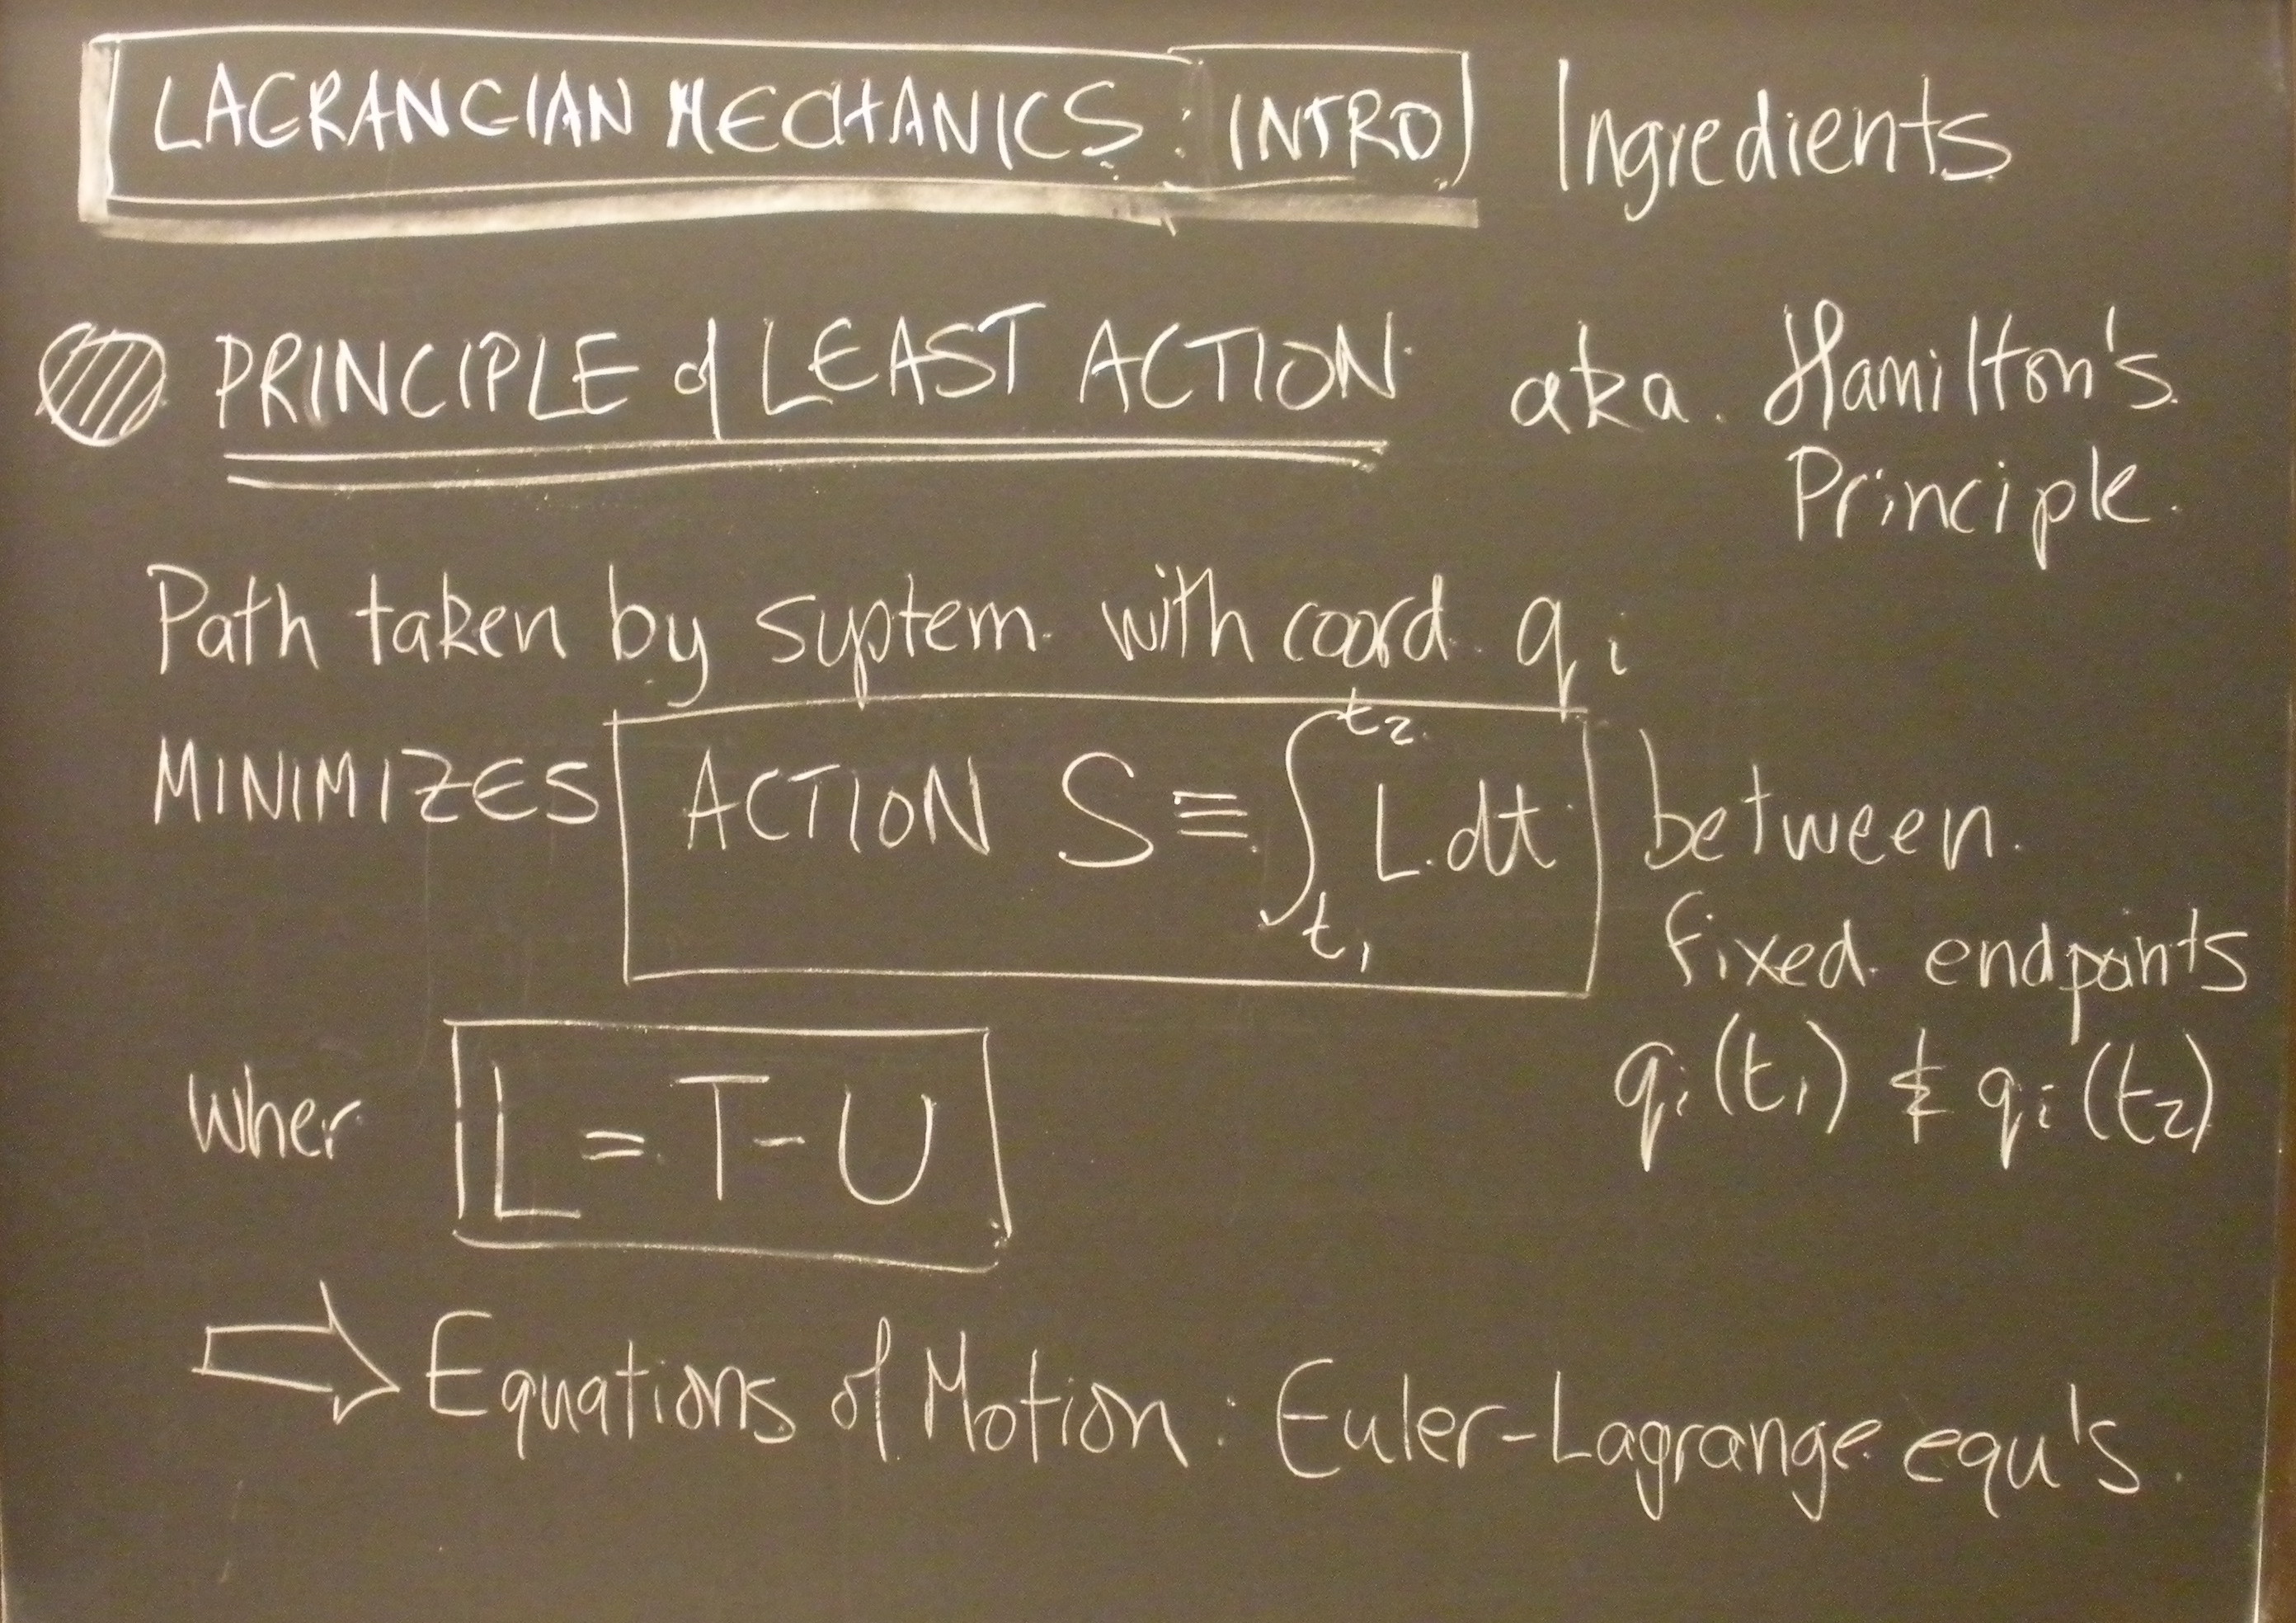 LAGRANGIAN MECHANICS : INTRO Ingredients
PRINCIPLE of LEAST ACTION aka. Hamilton's
Principle.
Path taken by system with coord. qi
MINIMIZES ACTION S ≡ ∫_{t1}^{t2} L dt between
fixed endpoints
where L = T - U qi(t1) & qi(t2)
⇒ Equations of Motion : Euler-Lagrange equ's.